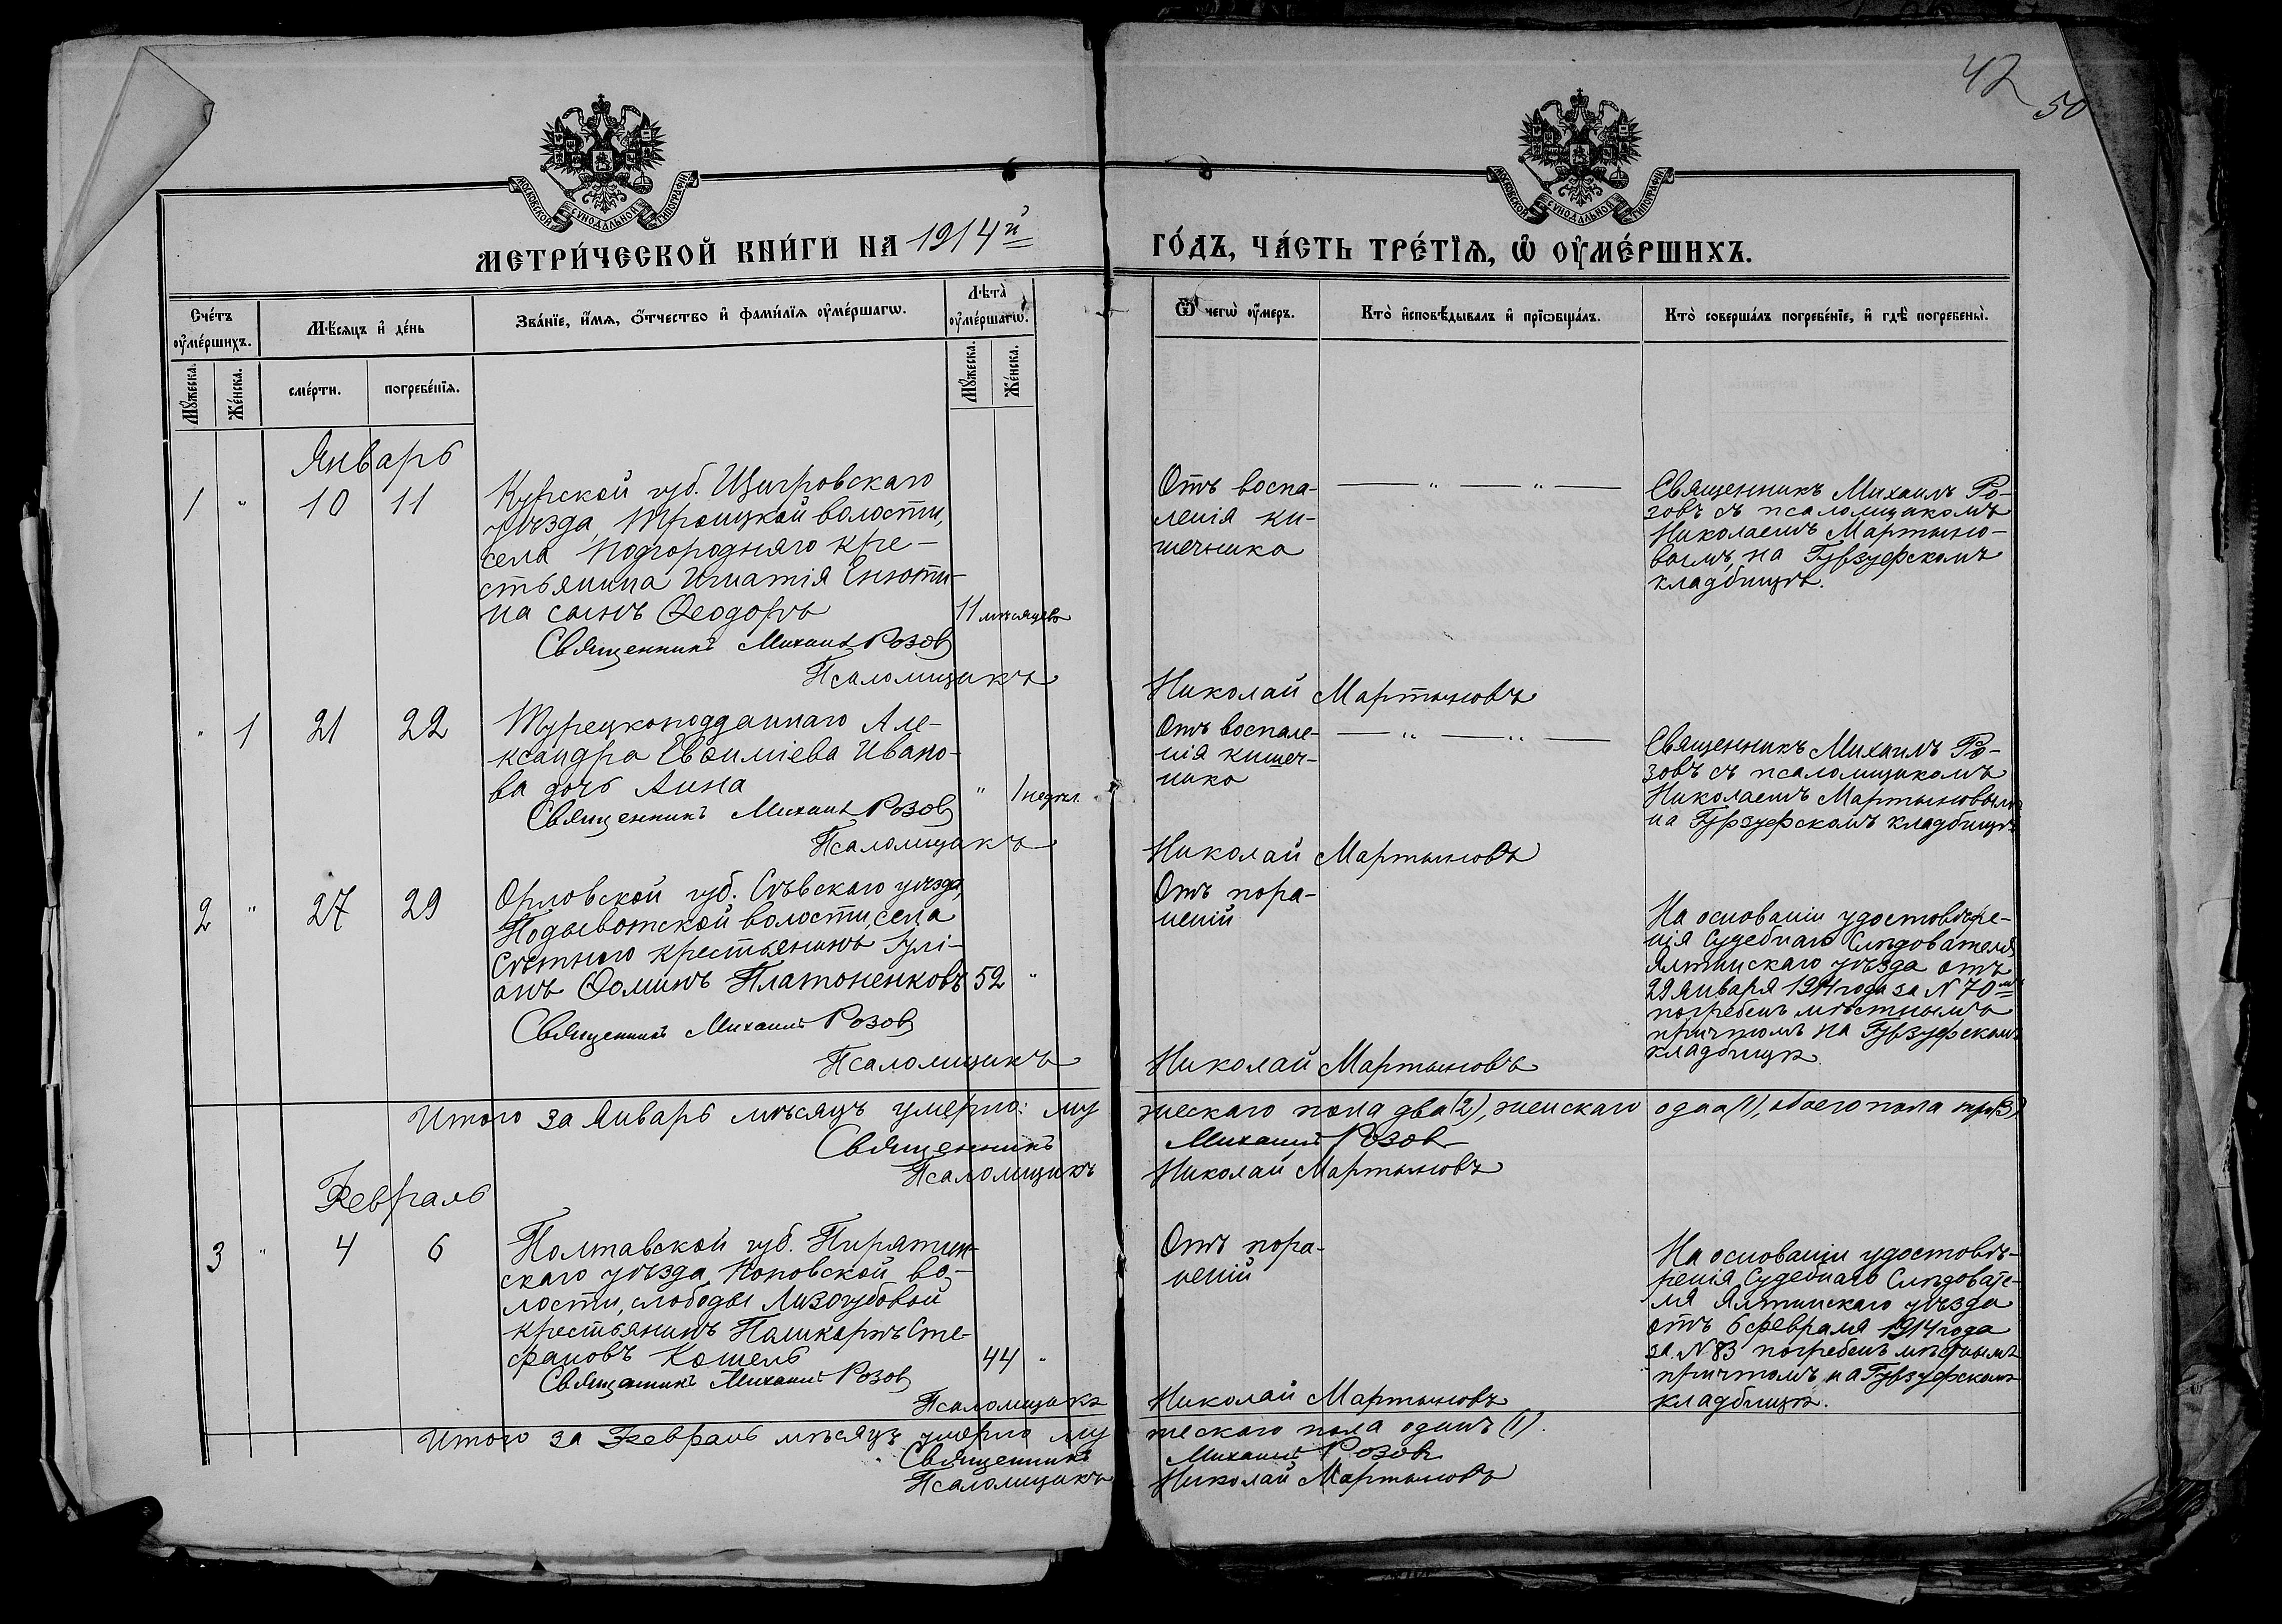 42
50
МОСКОВСКОЙ СѴНОДАЛЬНОЙ ТИПОГРАФІИ
МОСКОВСКОЙ СѴНОДАЛЬНОЙ ТИПОГРАФІИ
МЕТРИ́ЧЕСКОЙ КНИ́ГИ НА 1914й
ГО́ДЪ, ЧА́СТЬ ТРЕ́ТЇѦ, Ѡ҆ ОУ҆МЕ́РШИХЪ.
Сче́тъ оу҆ме́ршихъ.
Мꙋ́жеска.
Же́нска.
Мѣ́сѧцъ и҆ де́нь
сме́рти.
погребе́нїѧ.
Зва́нїе, и҆́мѧ, ѻ҆́тчество и҆ фами́лїѧ оу҆ме́ршагѡ.
Лѣ̑та̀ оу҆ме́ршагѡ.
Мꙋ́жеска.
Же́нска.
Ѿ чегѡ̀ оу҆́меръ.
Кто̀ и҆сповѣ́дывалъ и҆ прїѡбща́лъ.
Кто̀ соверша́лъ погребе́нїе, и҆ гдѣ̀ погребены̀.
Январь
1 " 10 11
Курской губ. Щигровскаго
уѣзда, Троицкой волости,
села Подгородняго кре-
стьянина Игнатія Енюти-
на сынъ Ѳеодоръ
11 мѣсяцевъ
Священникъ Михаилъ Розовъ
Псаломщикъ Николай Мартыновъ
Отъ воспа-
ленія ки-
шечника
— " — " —
Священникъ Михаилъ Ро-
зовъ съ псаломщикомъ
Николаемъ Мартыно-
вымъ, на Гурзуфскомъ
кладбищѣ.
" 1 21 22
Турецкоподданнаго Але-
ксандра Евѳиміева Ивано-
ва дочь Анна
" 1 недѣл.
Священникъ Михаилъ Розовъ
Псаломщикъ Николай Мартыновъ
Отъ воспале-
нія кишеч-
ника
— " — " —
Священникъ Михаилъ Ро-
зовъ съ псаломщикомъ
Николаемъ Мартыновымъ
на Гурзуфскомъ кладбищѣ
2 " 27 29
Орловской губ. Сѣвскаго уѣзда,
Подывотской волости, села
крестьянинъ Іулі-
анъ Ѳоминъ Платоненковъ
52 "
Священникъ Михаилъ Розовъ
Псаломщикъ Николай Мартыновъ
Отъ пора-
неній
На основаніи удостовѣре-
нія Судебнаго Слѣдователя
Ялтинскаго уѣзда отъ
29 Января 1914 года за N 70м
погребенъ мѣстнымъ
причтомъ на Гурзуфскомъ
кладбищѣ.
Итого за Январь мѣсяцъ умерло: мужескаго пола два (2), женскаго одна (1), обоего пола три (3)
Священникъ Михаилъ Розовъ
Псаломщикъ Николай Мартыновъ
Февраль
3 " 4 6
Полтавской губ. Пирятин-
скаго уѣзда, во-
лости, слободы Лизогубовой
крестьянинъ Поликарпъ Сте-
фановъ Кошель
44 "
Священникъ Михаилъ Розовъ
Псаломщикъ Николай Мартыновъ
Отъ пора-
неній
На основаніи удостовѣ-
ренія Судебнаго Слѣдовате-
ля Ялтинскаго уѣзда
отъ 6 февраля 1914 года
за N 83 погребенъ мѣстнымъ
причтомъ на Гурзуфскомъ
кладбищѣ.
Итого за Февраль мѣсяцъ умерло мужескаго пола одинъ (1).
Священникъ Михаилъ Розовъ
Псаломщикъ Николай Мартыновъ